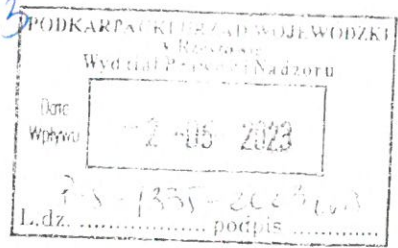 3
PODKARPACKI URZĄD WOJEWÓDZKI
w Rzeszowie
Wydział Prawny i Nadzoru
Data
Wpływu
-2 -05- 2023
L.dz. .................. podpis .............